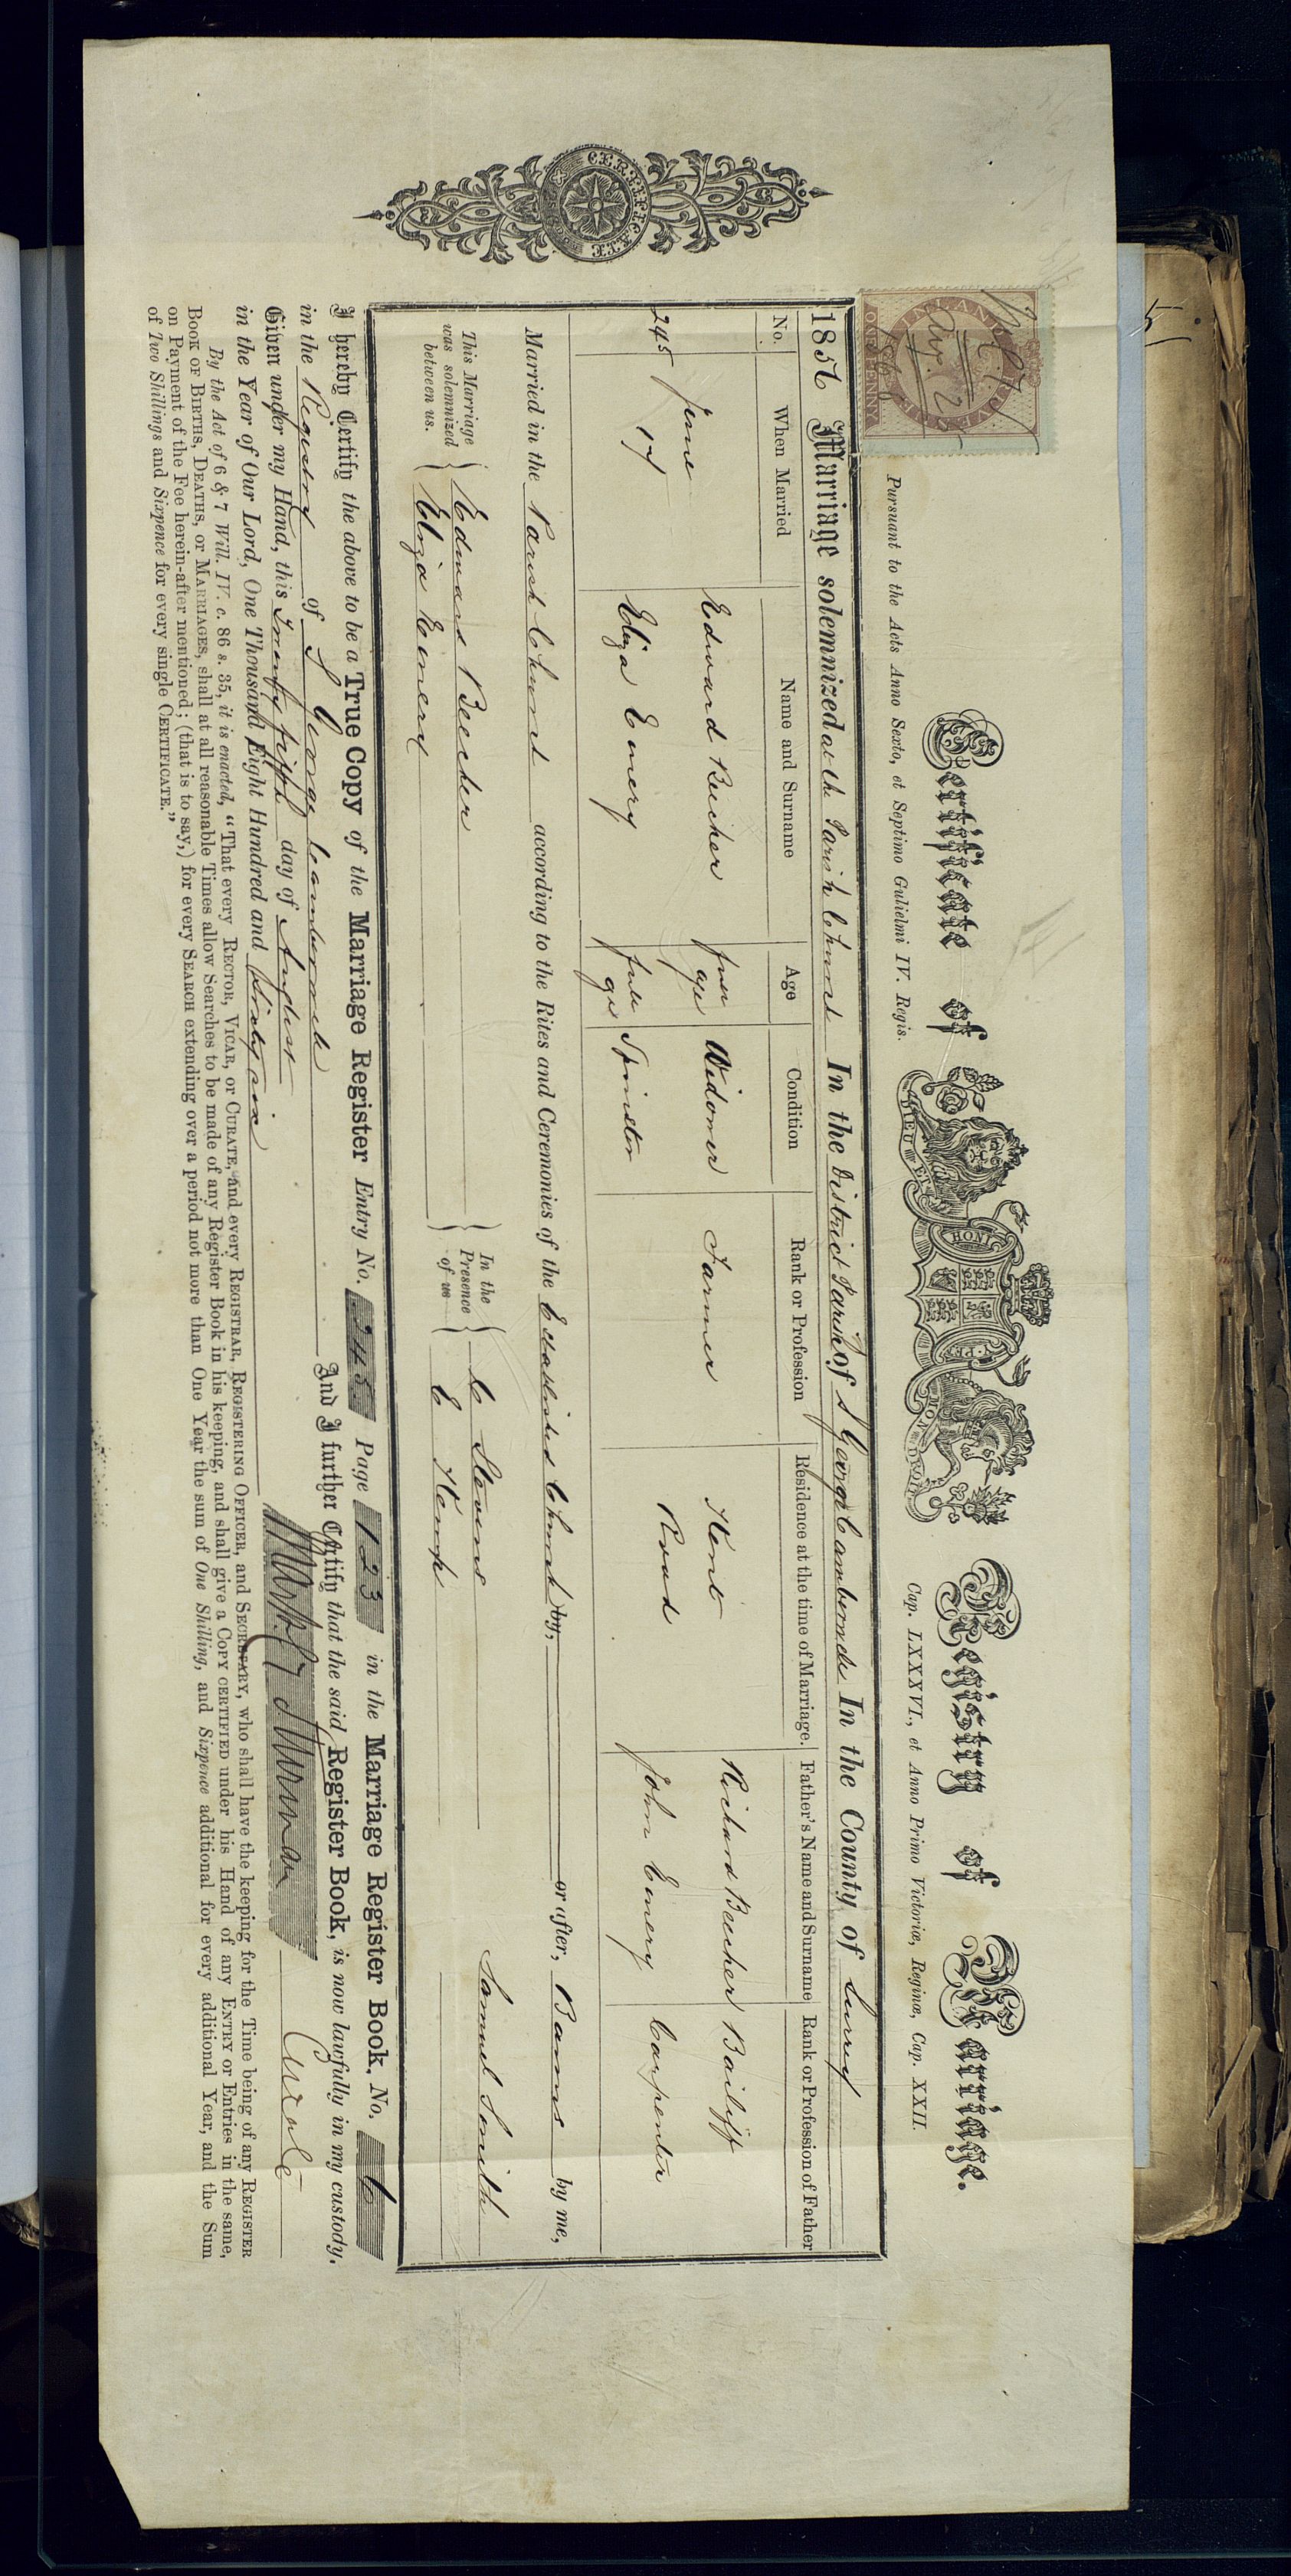 Certificate of Registry of Marriage.
DIEU ET MON DROIT
HONI
Pursuant to the Acts Anno Sexto, et Septimo Gulielmi IV. Regis. Cap. LXXXVI., et Anno Primo Victoriæ, Reginæ, Cap. XXII.
INLAND REVENUE
ONE PENNY
CERTIFICATE
1856 Marriage solemnized at the Parish Church In the District Parish of S George Camberwell In the County of Surrey
No. When Married Name and Surname Age Condition Rank or Profession Residence at the time of Marriage. Father's Name and Surname Rank or Profession of Father
245 June 17 Edward Beecher full age Widower Farmer Kent Road Richard Beecher Bailiff
Eliza Emery full age Spinster John Emery Carpenter
Married in the Parish Church according to the Rites and Ceremonies of the Established Church by, or after, Banns by me,
This Marriage was solemnized between us. Edward Beecher In the Presence of us C Stevens Samuel Smith
Eliza Emery E Kemp
I hereby Certify the above to be a True Copy of the Marriage Register Entry No. 245 Page 123 in the Marriage Register Book, No. 6
in the Registry of S George Camberwell And I further Certify that the said Register Book, is now lawfully in my custody.
Given under my Hand, this Twenty fifth day of August
in the Year of Our Lord, One Thousand Eight Hundred and Sixty six Curate
By the Act of 6 & 7 Will. IV. c. 86 s. 35, it is enacted, "That every RECTOR, VICAR, or CURATE, and every REGISTRAR, REGISTERING OFFICER, and SECRETARY, who shall have the keeping for the Time being of any REGISTER
BOOK OF BIRTHS, DEATHS, or MARRIAGES, shall at all reasonable Times allow Searches to be made of any Register Book in his keeping, and shall give a COPY CERTIFIED under his Hand of any ENTRY or Entries in the same,
on Payment of the Fee herein-after mentioned; (that is to say,) for every SEARCH extending over a period not more than One Year the sum of One Shilling, and Sixpence additional for every additional Year, and the Sum
of Two Shillings and Sixpence for every single CERTIFICATE."
5